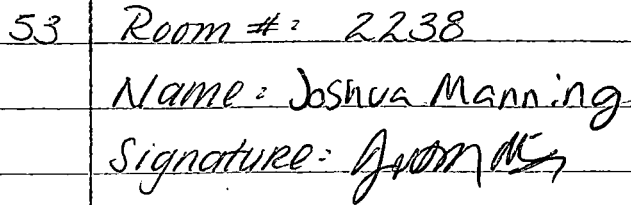 53 Room #: 2238
Name: Joshua Manning
Signature: